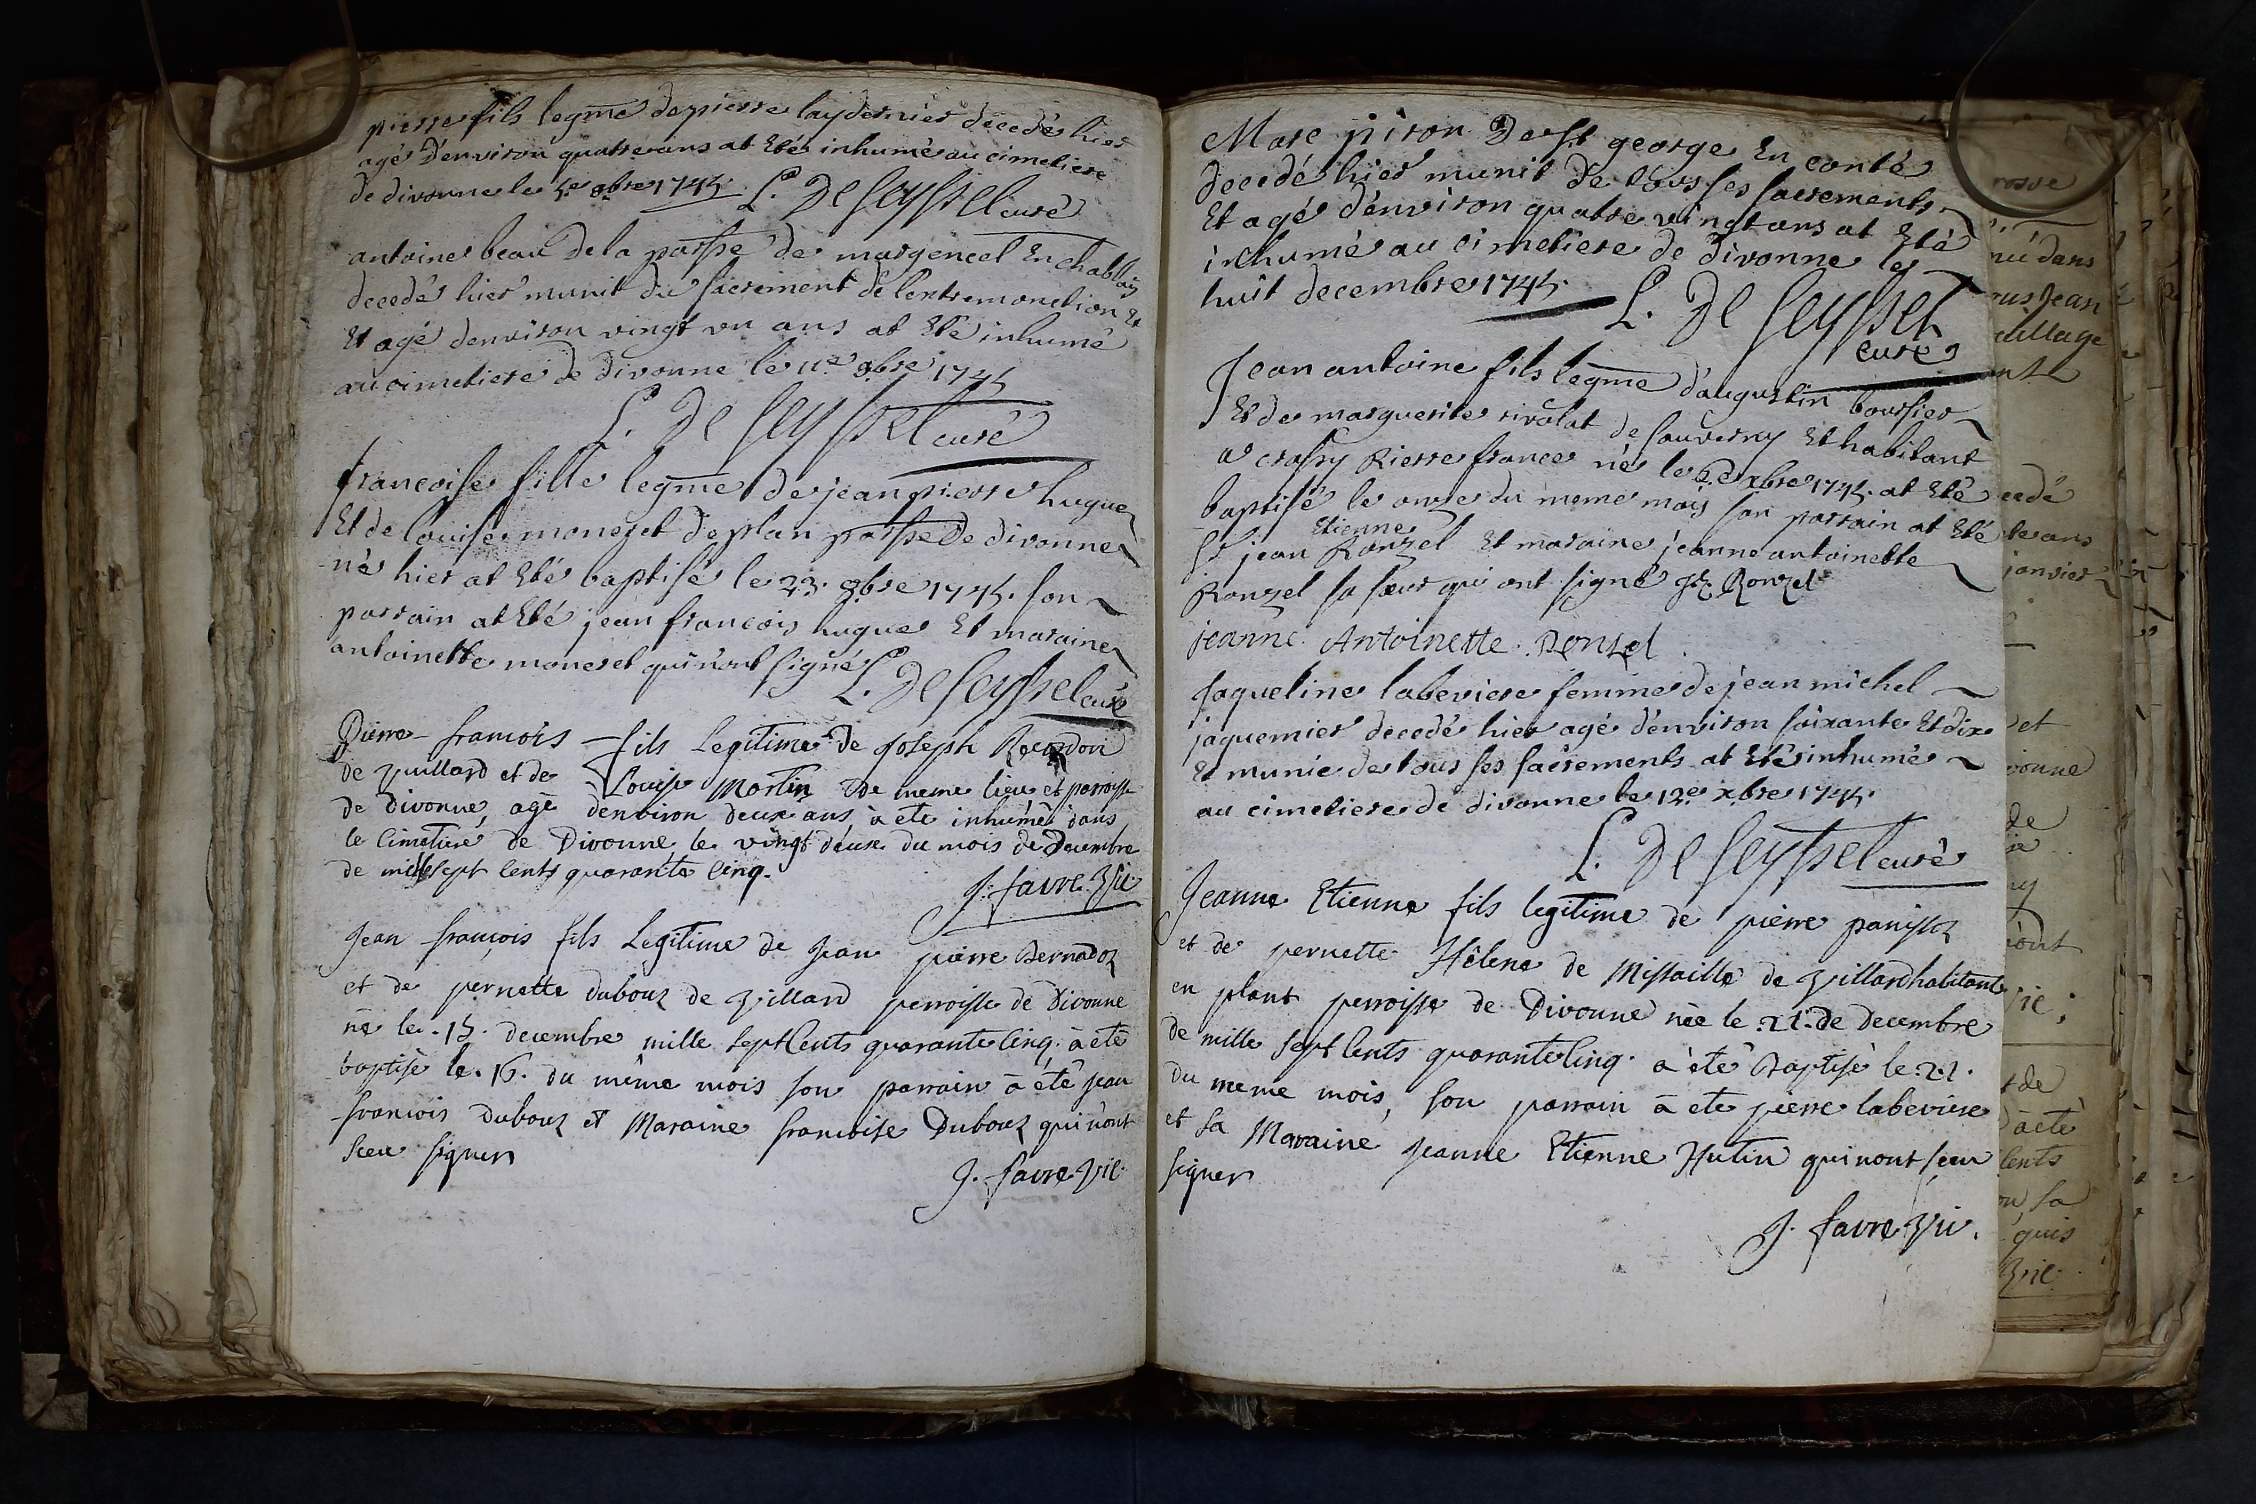 pierre fils legme de pierre lay dernier decedé hier
agé d'environ quatre ans at Eté inhumé au cimetiere
de divonne le 5e 9bre 1745. L. De Seyssel curé
antoine beau de la parsse de margencel En chablais
decedé hier munit du sacrement de lextremonction Et
Et agé denviron vingt un ans at Eté inhumé
au cimetiere de divonne le 11e 9bre 1745
L. De Seyssel curé
francoise fille legme de jean pierre hugue
Et de louise monezet de plan parsse De divonne
né hier at Eté baptisé le 23. 9bre 1745. son
parrain at Eté jean francois hugue Et maraine
antoinette moneset qui n'ont signé
L. De Seyssel curé
Pierre francois fils Legitime de Joseph Recordon
de Vuillard et de Louise Martin de meme lieu et parroisse
de Divonne, agé d'environ deux ans à eté inhumé dans
le Cimetiere de Divonne le vingt deuxe du mois de Decembre
de mille sept cents quarante cinq.
J. favre Vic
Jean françois fils Legitime de Jean pierre Bernadoz
et de pernette Dubouz de Villard perroisse de Divonne
né le .15. decembre mille sept Cents quarante cinq. à eté
baptisé le .16. du même mois son parrain à été jean
francois Dubouz et Maraine francoise Dubouz qui n'ont
sceu signer
J. favre Vic.
Marc piron De st george En conté
decedé hier munit de tous ses sacrements
Et agé d'environ quatre vingt ans at Eté
inhumé au cimetiere de divonne le
huit decembre 1745.
L. De Seyssel
curé
Jean antoine fils legme d'augustin boursier
Et de marguerite rivolat de sauverny Et habitant
a crassy Rierre france né le 6e xbre 1745. at Eté
baptisé le onze du meme mois son parrain at Eté
Etienne
Sr jean Ronzel Et maraine jeanne antoinette
Ronzel sa sœur qui ont signé JE Ronzel
jeanne Antoinette Ronzel
Jaqueline labeviere femme de jean michel
jaquemier decedé hier agé d'environ soixante Et dix
Et munie de tous ses sacrements at Eté inhumé
au cimetiere de divonne le 12e xbre 1745.
L. De Seyssel curé
Jeanne Etienne fils legitime de pierre panissoz
et de pernette Hélene de Missaille de Villard habitants
en plant perroisse de Divonne née le .21. de Decembre
de mille sept Cents quarante Cinq. a èté Baptisé le .22.
du meme mois, son parrain à eté pierre labeviere
et sa Maraine Jeanne Etienne Hutin qui n'ont sceu
signer
J. favre Vic.